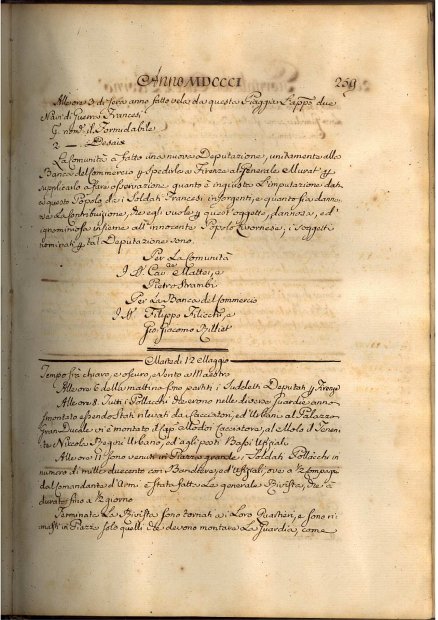 Anno MDCCCI 259
Alle ore 3 di sera anno fatto vela da questa Piaggia le app.e due
Navi di Guerra Francesi
G. nom.e il Formidabile
2 — Desaix
La Comunità à fatto una nuova Deputazione, unitamente alla
Banca del Commercio p Spedirla a Firenze al Generale Murat p
supplicarlo a fare osservazione quanto è ingiusta l'imputazione data
a questo Popolo da i Soldati Francesi insorgenti, e quanto sia danno-
sa la Contribuzione, che egli vuole p quest'oggetto, dannosa, ed
ignominiosa insieme all'innocente Popolo Livornese, i soggetti
nominati p tal Deputazione sono.
Per La Comunità
I SS. Cav.re Mattei, e
Pietro Strambi
Per La Banca del Commercio
I SS. Filippo Filicchi, e
Gio: Giacomo Billiet
Martedì 12 Maggio
Tempo frà chiaro, e oscuro, e Vento a Maestro
Alle ore 6 della mattina sono partiti i Suddetti Deputati p Firenze
Alle ore 8. Tutti i Pollacchi che erono nelle diverse Guardie anno
smontato essendo Stati rilevati da i Cacciatori, ed Urbani al Palazzo
Gran Ducale ci è montato il Cap.o Cacciatore, al Molo il Tenen-
te Niccola Urbano, ed agli posti Bassi Ufiziali.
Alle ore 11 sono venuti in Piazza grande i Soldati Pollacchi in
numero di mille duecento con Bandiere, ed Ufiziali, ove a
dal Comandante d'Armi è Stata fatta la generale Rivista, che à
durato fino a ½ giorno
Terminata La Rivista sono tornati a i Loro Quartieri, e sono ri-
masti in Piazza solo quelli che devono montare La Guardia, come